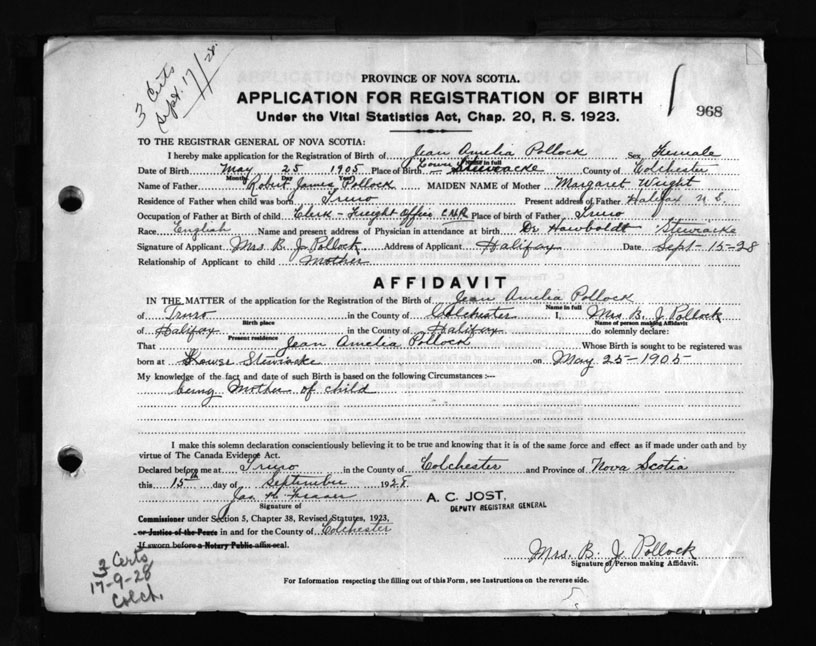 3 Certs
Sept. 17/28.
PROVINCE OF NOVA SCOTIA.
APPLICATION FOR REGISTRATION OF BIRTH
Under the Vital Statistics Act, Chap. 20, R. S. 1923.
968
TO THE REGISTRAR GENERAL OF NOVA SCOTIA:
I hereby make application for the Registration of Birth of Jean Amelia Pollock Sex Female
Name in full
Date of Birth May 25 1905 Place of Birth Lower Stewiacke County of Colchester
Month Day Year
Name of Father Robert James Pollock MAIDEN NAME of Mother Margaret Wright
Residence of Father when child was born Truro Present address of Father Halifax N. S.
Occupation of Father at Birth of child Clerk - Freight Office C.N.R. Place of birth of Father Truro
Race English Name and present address of Physician in attendance at birth Dr Howboldt Stewiacke
Signature of Applicant Mrs. B. J. Pollock Address of Applicant Halifax Date Sept-15-28
Relationship of Applicant to child Mother
AFFIDAVIT
IN THE MATTER of the application for the Registration of the Birth of Jean Amelia Pollock
Name in full
of Truro in the County of Colchester I, Mrs B. J. Pollock
Birth place Name of person making Affidavit
of Halifax in the County of Halifax do solemnly declare:
Present residence
That Jean Amelia Pollock Whose Birth is sought to be registered was
born at Lower Stewiacke on May 25-1905
My knowledge of the fact and date of such Birth is based on the following Circumstances :—
being Mother of child
I make this solemn declaration conscientiously believing it to be true and knowing that it is of the same force and effect as if made under oath and by
virtue of The Canada Evidence Act.
Declared before me at Truro in the County of Colchester and Province of Nova Scotia
this 15th day of September 1928
Jas. H.
Signature of
A. C. JOST,
DEPUTY REGISTRAR GENERAL
Commissioner under Section 5, Chapter 38, Revised Statutes, 1923,
or Justice of the Peace in and for the County of Colchester
If sworn before a Notary Public affix seal.
Mrs. B. J. Pollock
Signature of Person making Affidavit.
3 Certs
17-9-28
Colch.
For Information respecting the filling out of this Form, see Instructions on the reverse side.